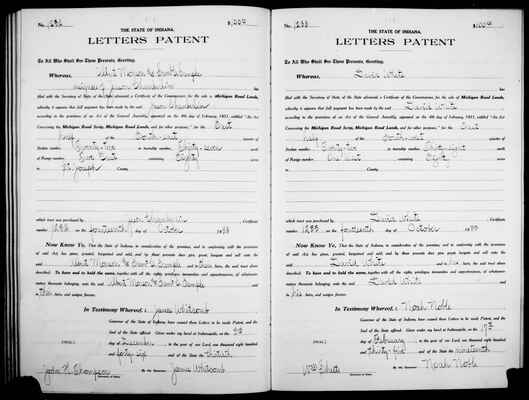 No. 1232
$100%
THE STATE OF INDIANA.
LETTERS PATENT
To All Who Shall See These Presents, Greeting.
Whereas, Albert Monson & Grant
assignees of Jason Chamberlin has
filed with the Secretary of State of the State aforesaid, a Certificate of the Commissioner, for the sale of Michigan Road Lands,
whereby it appears that full payment has been made by the said Jason Chamberlin
according to the provisions of an Act of the General Assembly, approved on the 4th day of February, 1831, entitled "An Act
Concerning the Michigan Road Scrip, Michigan Road Lands, and for other purposes," for the East
half of the Southwest quarter of
Section number Twenty-two in township number Thirty-seven north
of Range number Two East containing Eighty acres
in St. Joseph County,
which tract was purchased by Jason Chamberlin, Certificate
number 1232 on the fourteenth day of October 1833
Now Know Ye, That the State of Indiana, in consideration of the premises, and in conformity with the provisions
of said Act, has given, granted, bargained and sold, and by these presents does give, grant, bargain and sell unto the
said Albert Monson & Grant and their heirs, the said tract above
described. To have and to hold the same, together with all the rights, privileges, immunities and appurtenances, of whatsoever
nature thereunto belonging, unto the said Albert Monson & Grant and
to their heirs, and assigns forever.
In Testimony Whereof, I James Whitcomb
Governor of the State of Indiana, have caused these Letters to be made Patent, and the
Seal of the State affixed. Given under my hand at Indianapolis, on the
[SEAL] day of December in the year of our Lord, one thousand eight hundred
and forty-six and of the State the thirtieth
By the Governor: James Whitcomb
John H. Thompson
Secretary of State.
No. 1233
$100%
THE STATE OF INDIANA.
LETTERS PATENT
To All Who Shall See These Presents, Greeting.
Whereas, David White
has
filed with the Secretary of State of the State aforesaid, a Certificate of the Commissioner, for the sale of Michigan Road Lands,
whereby it appears that full payment has been made by the said David White
according to the provisions of an Act of the General Assembly, approved on the 4th day of February, 1831, entitled "An Act
Concerning the Michigan Road Scrip, Michigan Road Lands, and for other purposes," for the East
half of the Southwest quarter of
Section number Twenty-two in township number Thirty-eight north
of Range number One West containing Eighty acres
in County,
which tract was purchased by David White, Certificate
number 1233 on the fourteenth day of October 1833
Now Know Ye, That the State of Indiana, in consideration of the premises, and in conformity with the provisions
of said Act, has given, granted, bargained and sold, and by these presents does give, grant, bargain and sell unto the
said David White and his heirs, the said tract above
described. To have and to hold the same, together with all the rights, privileges, immunities and appurtenances, of whatsoever
nature thereunto belonging, unto the said David White and
to his heirs, and assigns forever.
In Testimony Whereof, I Noah Noble
Governor of the State of Indiana, have caused these Letters to be made Patent, and the
Seal of the State affixed. Given under my hand at Indianapolis, on the 17th
[SEAL] day of February in the year of our Lord, one thousand eight hundred
and thirty-five and of the State the nineteenth
By the Governor: Noah Noble
Wm Sheets
Secretary of State.